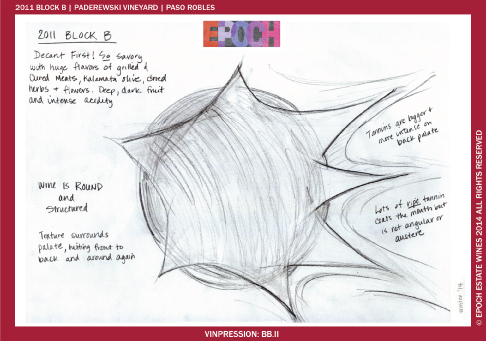 2011 BLOCK B | PADEREWSKI VINEYARD | PASO ROBLES
2011 BLOCK B
EPOCH
Decant First! So savory
with huge flavors of grilled &
cured meats, Kalamata olive, dried
herbs + flavors. Deep, dark fruit
and intense acidity
Tannins are bigger +
more intense on
back palate
Wine is ROUND
and
Structured
Lots of ripe tannin
coats the mouth but
is not angular or
austere
Texture surrounds
palate, hitting front to
back and around again
© EPOCH ESTATE WINES 2014 ALL RIGHTS RESERVED
VINPRESSION: BB.II